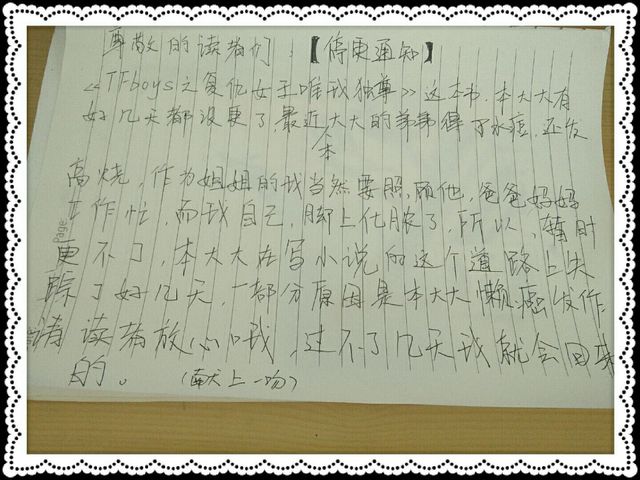 尊敬的读者们：【停更通知】
《TFboys之复仇女王唯我独尊》这本书，本大大有
好几天都没更了，最近本大大的弟弟得了水痘，还发
高烧，作为姐姐的我当然要照顾他，爸爸妈妈
工作忙，而我自己，脚上化脓了，所以，暂时
更不了，本大大在写小说的这个道路上失
踪了好几天，一部分原因是本大大懒癌发作
请读者放心哦，过不了几天我就会回来
的。（献上一吻）
Page: